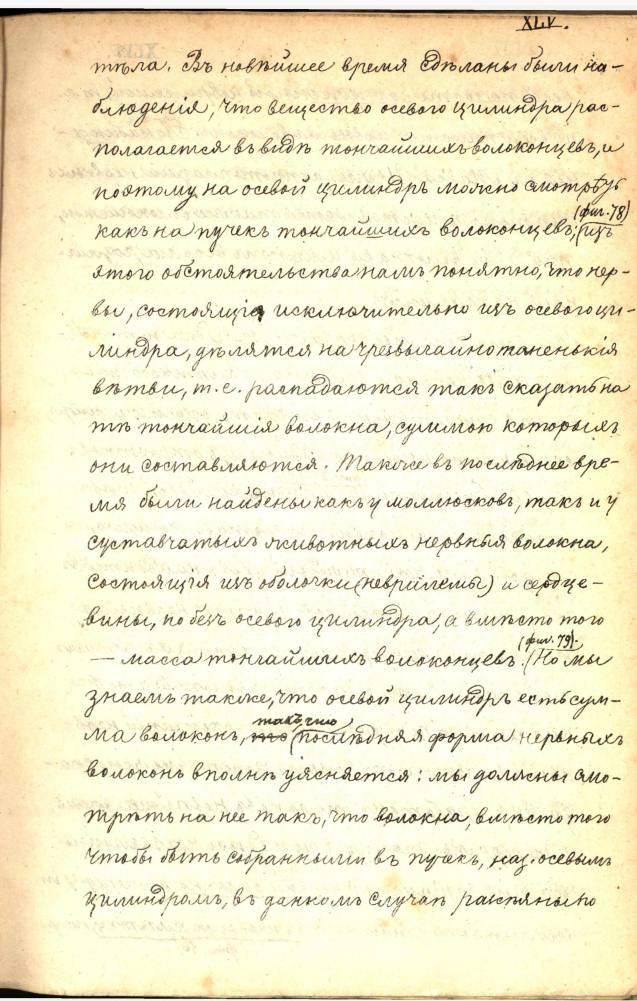 XLV.
тѣла. Въ новѣйшее время сдѣланы были на-
блюденія, что вещество осевого цилиндра рас-
полагается въ видѣ тончайшихъ волоконцевъ, и
поэтому на осевой цилиндръ можно смотрѣть
(фиг. 78)
какъ на пучекъ тончайшихъ волоконцевъ; (изъ
этого обстоятельства намъ понятно, что нер-
вы, состоящіе исключительно изъ осевого ци-
линдра, дѣлятся на чрезвычайно тоненькія
вѣтви, т.е. распадаются такъ сказать на
тѣ тончайшія волокна, суммою которыхъ
они составляются. Также въ послѣднее вре-
мя были найдены какъ у моллюсковъ, такъ и у
суставчатыхъ животныхъ нервныя волокна,
состоящія изъ оболочки (неврилемы) и сердце-
вины, но безъ осевого цилиндра, а вмѣсто того
(фиг. 79).
— масса тончайшихъ волоконцевъ. (Но мы
знаемъ также, что осевой цилиндръ есть сум-
такъ что
ма волоконъ, то (послѣдняя форма нервныхъ
волоконъ вполнѣ уясняется: мы должны смо-
трѣть на нее такъ, что волокна, вмѣсто того
чтобы быть собранными въ пучекъ, наз. осевымъ
цилиндромъ, въ данномъ случаѣ разсѣяны по